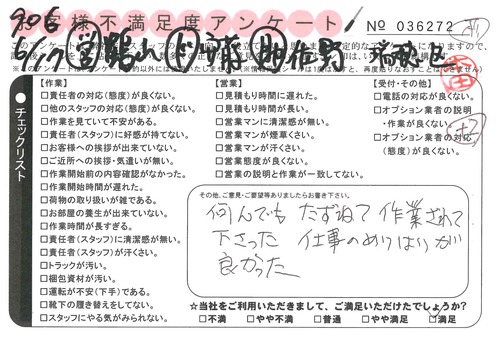 お客様不満足度アンケート
No 036272
906
【作業】
□責任者の対応(態度)が良くない。
□他のスタッフの対応(態度)が良くない。
□作業を見ていて不安がある。
□責任者(スタッフ)に好感が持てない。
□お客様への挨拶が出来ていない。
□ご近所への挨拶・気遣いが無い。
□作業開始前の内容確認がなかった。
□作業開始時間が遅れた。
□荷物の取り扱いが雑である。
□お部屋の養生が出来ていない。
□責任者(スタッフ)に清潔感が無い。
□責任者(スタッフ)が汗くさい。
□トラックが汚い。
□梱包資材が汚い。
□運転が不安(下手)である。
□靴下の履き替えをしてない。
□スタッフにやる気がみられない。
【営業】
□見積もり時間に遅れた。
□見積もり時間が長い。
□営業マンに清潔感が無い。
□営業マンが煙草くさい。
□営業マンが汗くさい。
□営業態度が良くない。
□営業の説明と作業が一致してない。
【受付・その他】
□電話の対応が良くない。
□オプション業者の説明
・作業が良くない。
□オプション業者の対応
(態度)が良くない。
チェックリスト
その他、ご意見・ご要望等ありましたらお書き下さい。
何んでも たずねて 作業されて
下さった 仕事のめりはりが
良かった
☆当社をご利用いただきまして、ご満足いただけたでしょうか?
□不満 □やや不満 □普通 □やや満足 □満足